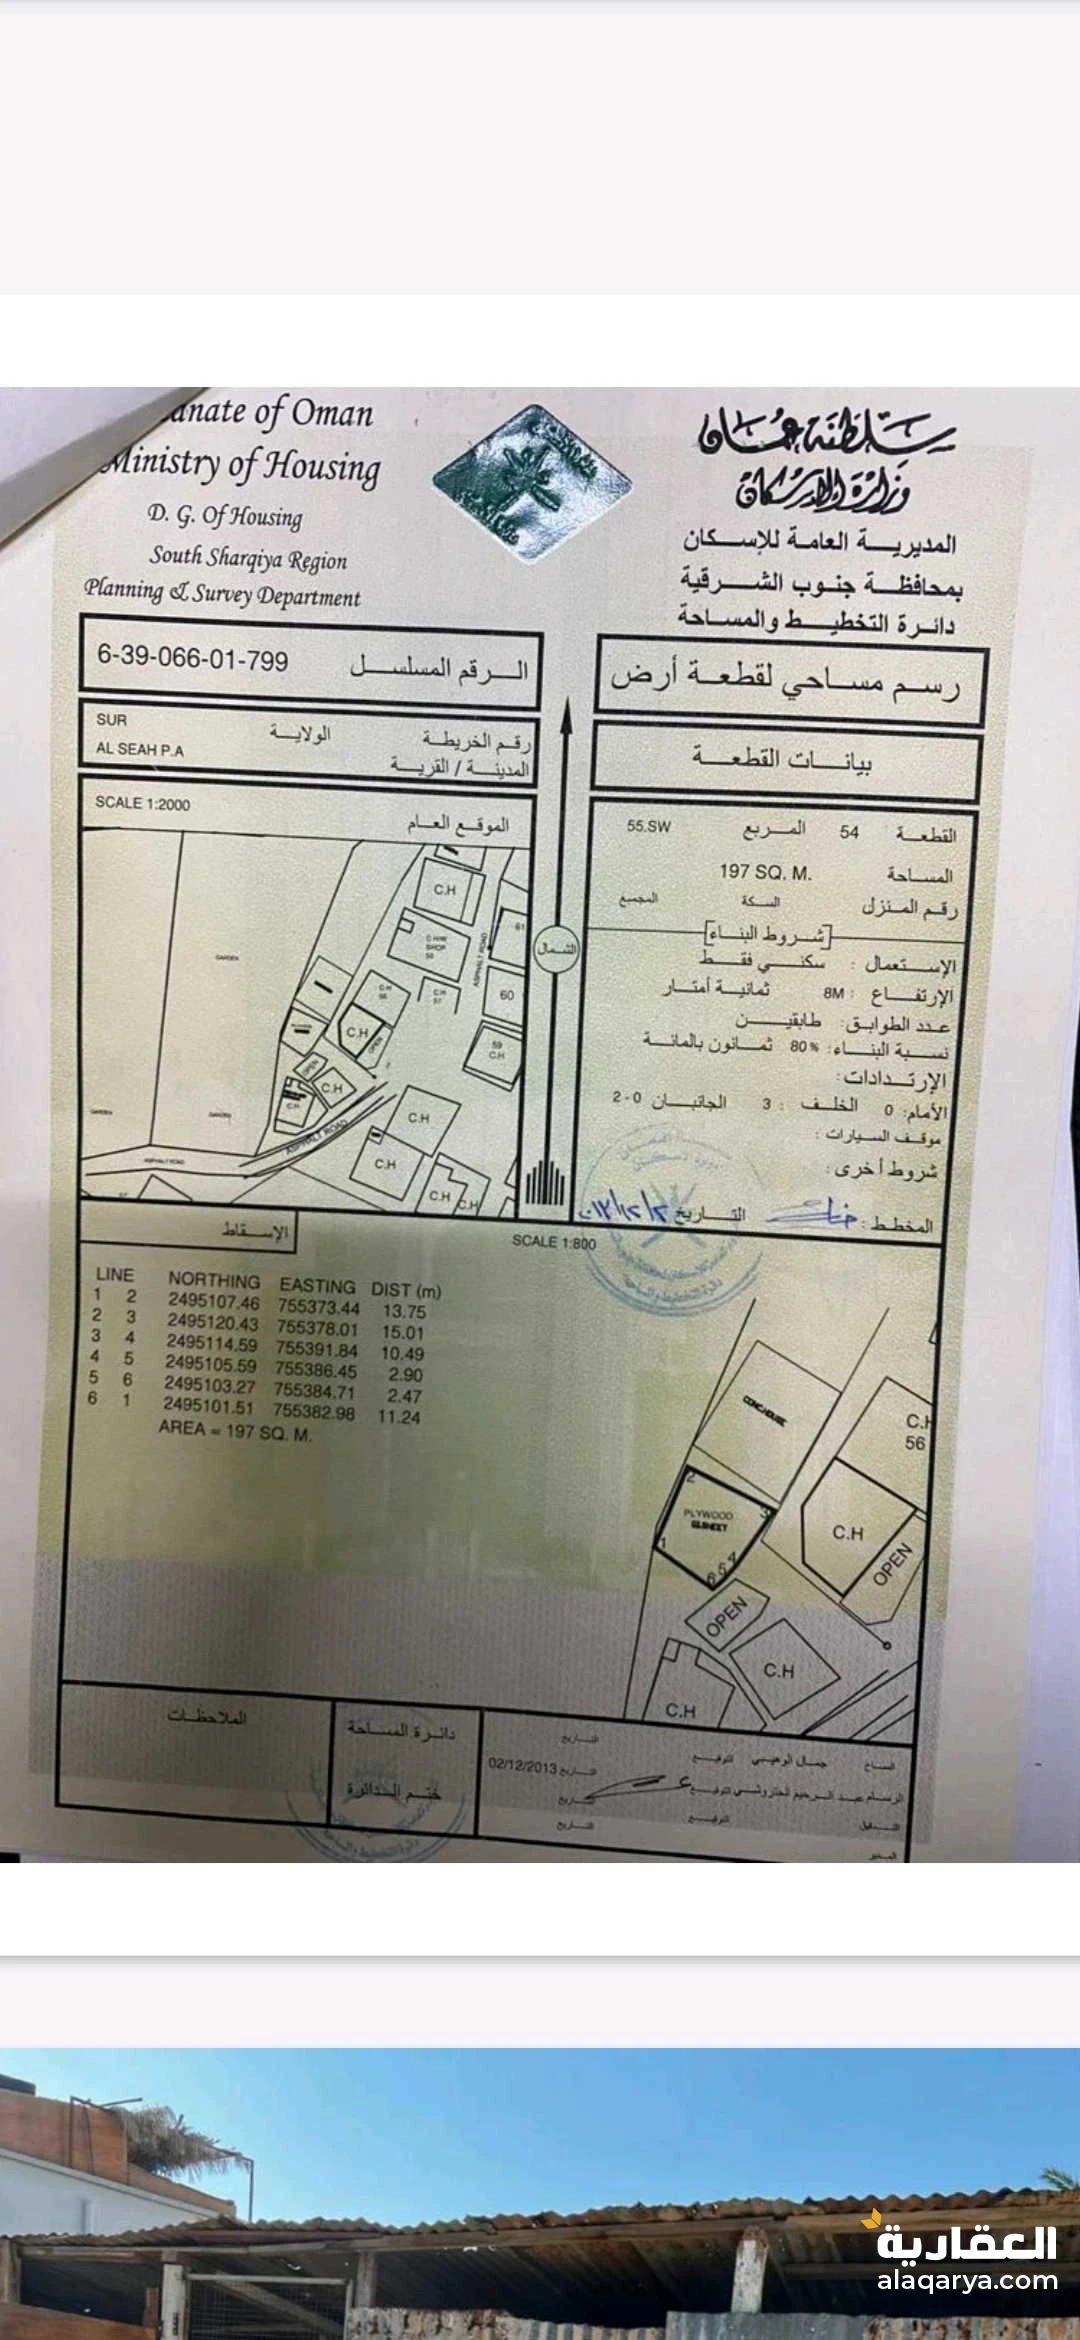 anate of Oman
Ministry of Housing
D. G. Of Housing
South Sharqiya Region
Planning & Survey Department
سلطنة عمان
وزارة الإسكان
المديرية العامة للإسكان
بمحافظة جنوب الشرقية
دائرة التخطيط والمساحة
6-39-066-01-799 الرقم المسلسل
رسم مساحي لقطعة أرض
SUR الولاية رقم الخريطة
AL SEAH P.A المدينة / القرية
بيانات القطعة
SCALE 1:2000 الموقع العام
القطعة 54 المربع 55.SW
المساحة 197 SQ. M.
رقم المنزل السكة المجمع
شروط البناء
الإستعمال : سكني فقط
الإرتفاع : 8M ثمانية أمتار
عدد الطوابق: طابقين
نسبة البناء: 80% ثمانون بالمائة
الإرتدادات:
الأمام: 0 الخلف : 3 الجانبان 0-2
موقف السيارات :
شروط أخرى:
المخطط: التاريخ
الشمال
GARDEN
C.H
SHOP
ASPHALT ROAD
61
C.H
56
C.H
57
60
C.H
OPEN
59
C.H
OPEN
C.H
C.H
GARDEN
GARDEN
ASPHALT ROAD
ASPHALT ROAD
C.H
C.H
C.H
C.H
الإسقاط
SCALE 1:800
LINE NORTHING EASTING DIST (m)
1 2 2495107.46 755373.44 13.75
2 3 2495120.43 755378.01 15.01
3 4 2495114.59 755391.84 10.49
4 5 2495105.59 755386.45 2.90
5 6 2495103.27 755384.71 2.47
6 1 2495101.51 755382.98 11.24
AREA = 197 SQ. M.
CONC.HOUSE
C.H
56
2
PLYWOOD
3
1
6 5 4
C.H
OPEN
OPEN
C.H
C.H
الملاحظات
دائرة المساحة
ختم الدائرة
المساح جمال الوهيبي التوقيع التاريخ
الرسام عبد الرحيم التوقيع التاريخ 02/12/2013
التدقيق التوقيع التاريخ
المدير التاريخ
العقارية
alaqarya.com